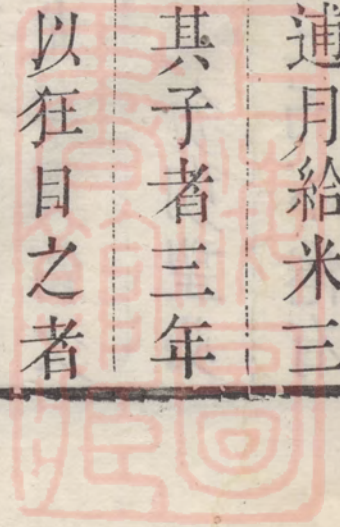 逋月給米三
其子者三年
以狂目之者